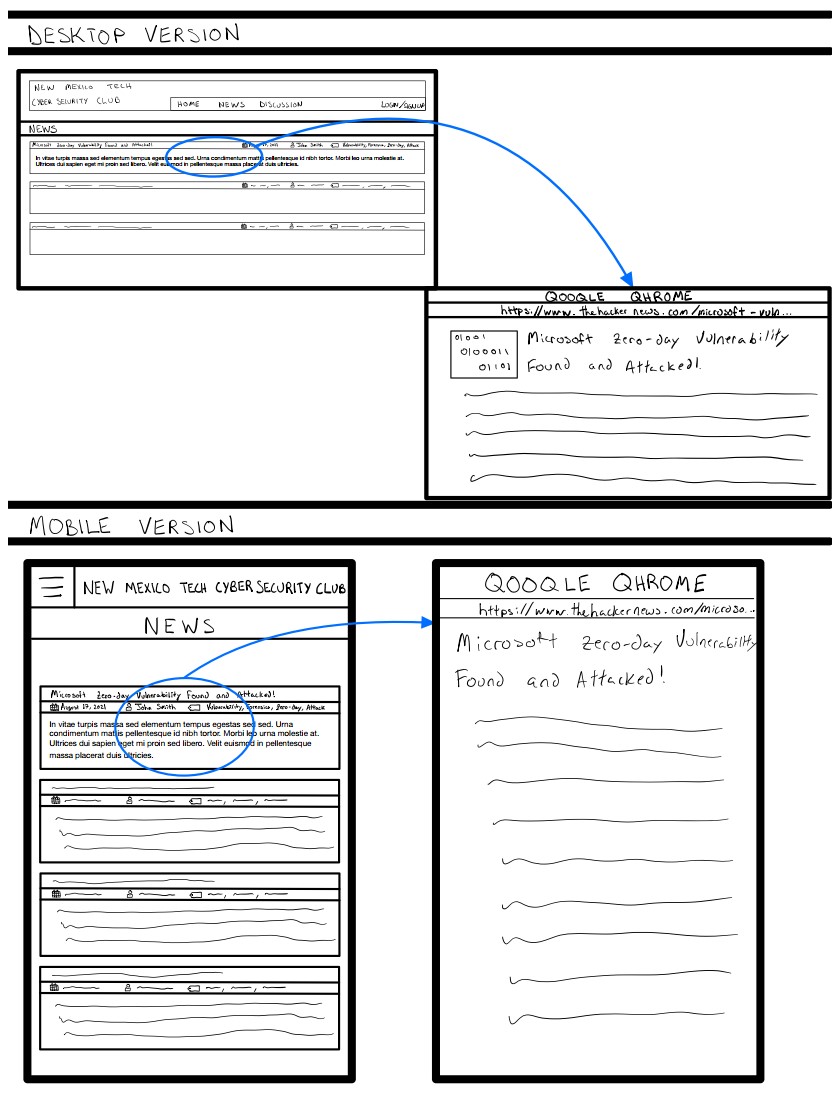 DESKTOP VERSION
NEW MEXICO TECH
CYBER SECURITY CLUB
HOME NEWS DISCUSSION LOGIN/SIGNUP
NEWS
Microsoft Zero-day Vulnerability Found and Attacked! August 17, 2021 John Smith Vulnerability, Forensics, Zero-day, Attack
In vitae turpis massa sed elementum tempus egestas sed sed. Urna condimentum mattis pellentesque id nibh tortor. Morbi leo urna molestie at.
Ultrices dui sapien eget mi proin sed libero. Velit euismod in pellentesque massa placerat duis ultricies.
QOOQLE QHROME
https://www.thehackernews.com/microsoft-vuln...
01001
0100011
01101
Microsoft Zero-day Vulnerability
Found and Attacked!
MOBILE VERSION
NEW MEXICO TECH CYBER SECURITY CLUB
NEWS
Microsoft Zero-day Vulnerability Found and Attacked!
August 17, 2021 John Smith Vulnerability, Forensics, Zero-day, Attack
In vitae turpis massa sed elementum tempus egestas sed sed. Urna
condimentum mattis pellentesque id nibh tortor. Morbi leo urna molestie at.
Ultrices dui sapien eget mi proin sed libero. Velit euismod in pellentesque
massa placerat duis ultricies.
QOOQLE QHROME
https://www.thehackernews.com/microso...
Microsoft Zero-day Vulnerability
Found and Attacked!